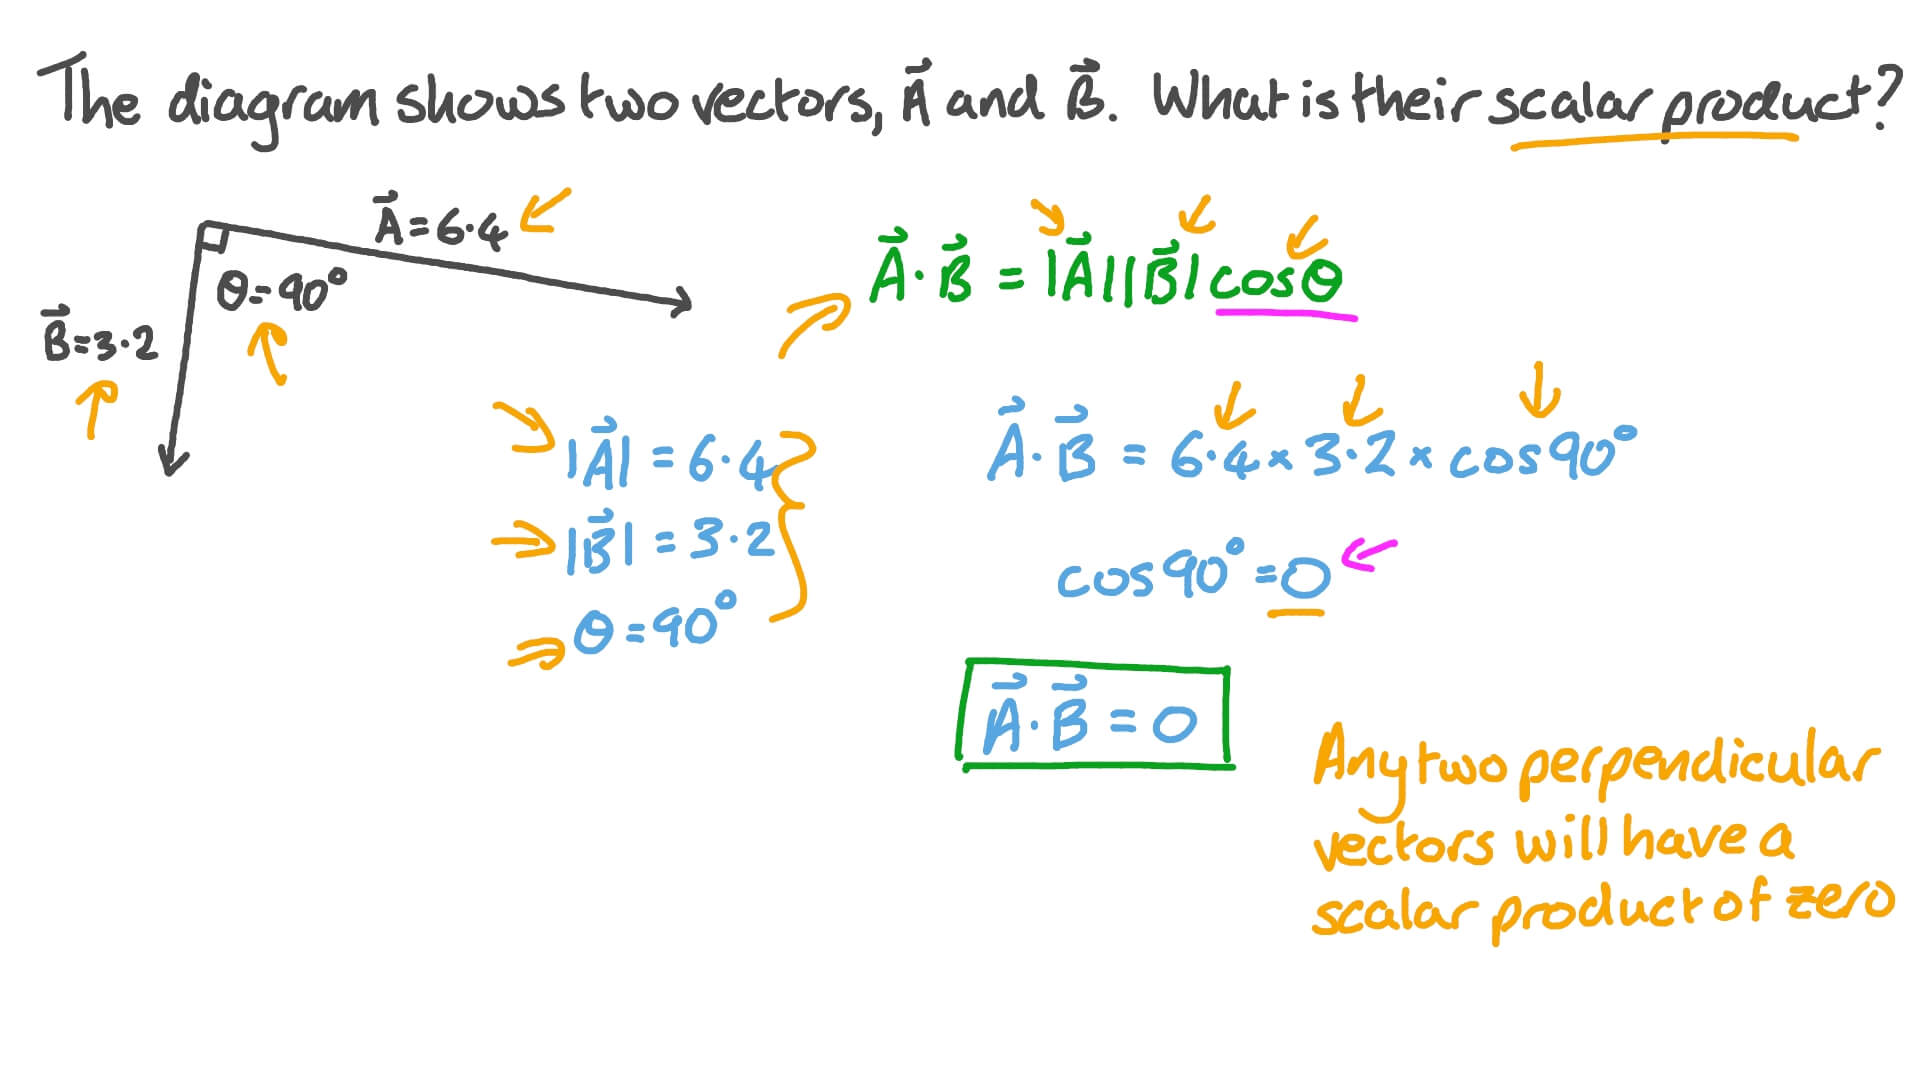 The diagram shows two vectors, A⃗ and B⃗. What is their scalar product?
A⃗=6·4
θ=90°
B⃗=3·2
A⃗·B⃗ = |A⃗||B⃗|cosθ
|A⃗| = 6·4
|B⃗| = 3·2
θ=90°
A⃗·B⃗ = 6·4×3·2×cos90°
cos90°=0
A⃗·B⃗ = 0
Any two perpendicular
vectors will have a
scalar product of zero